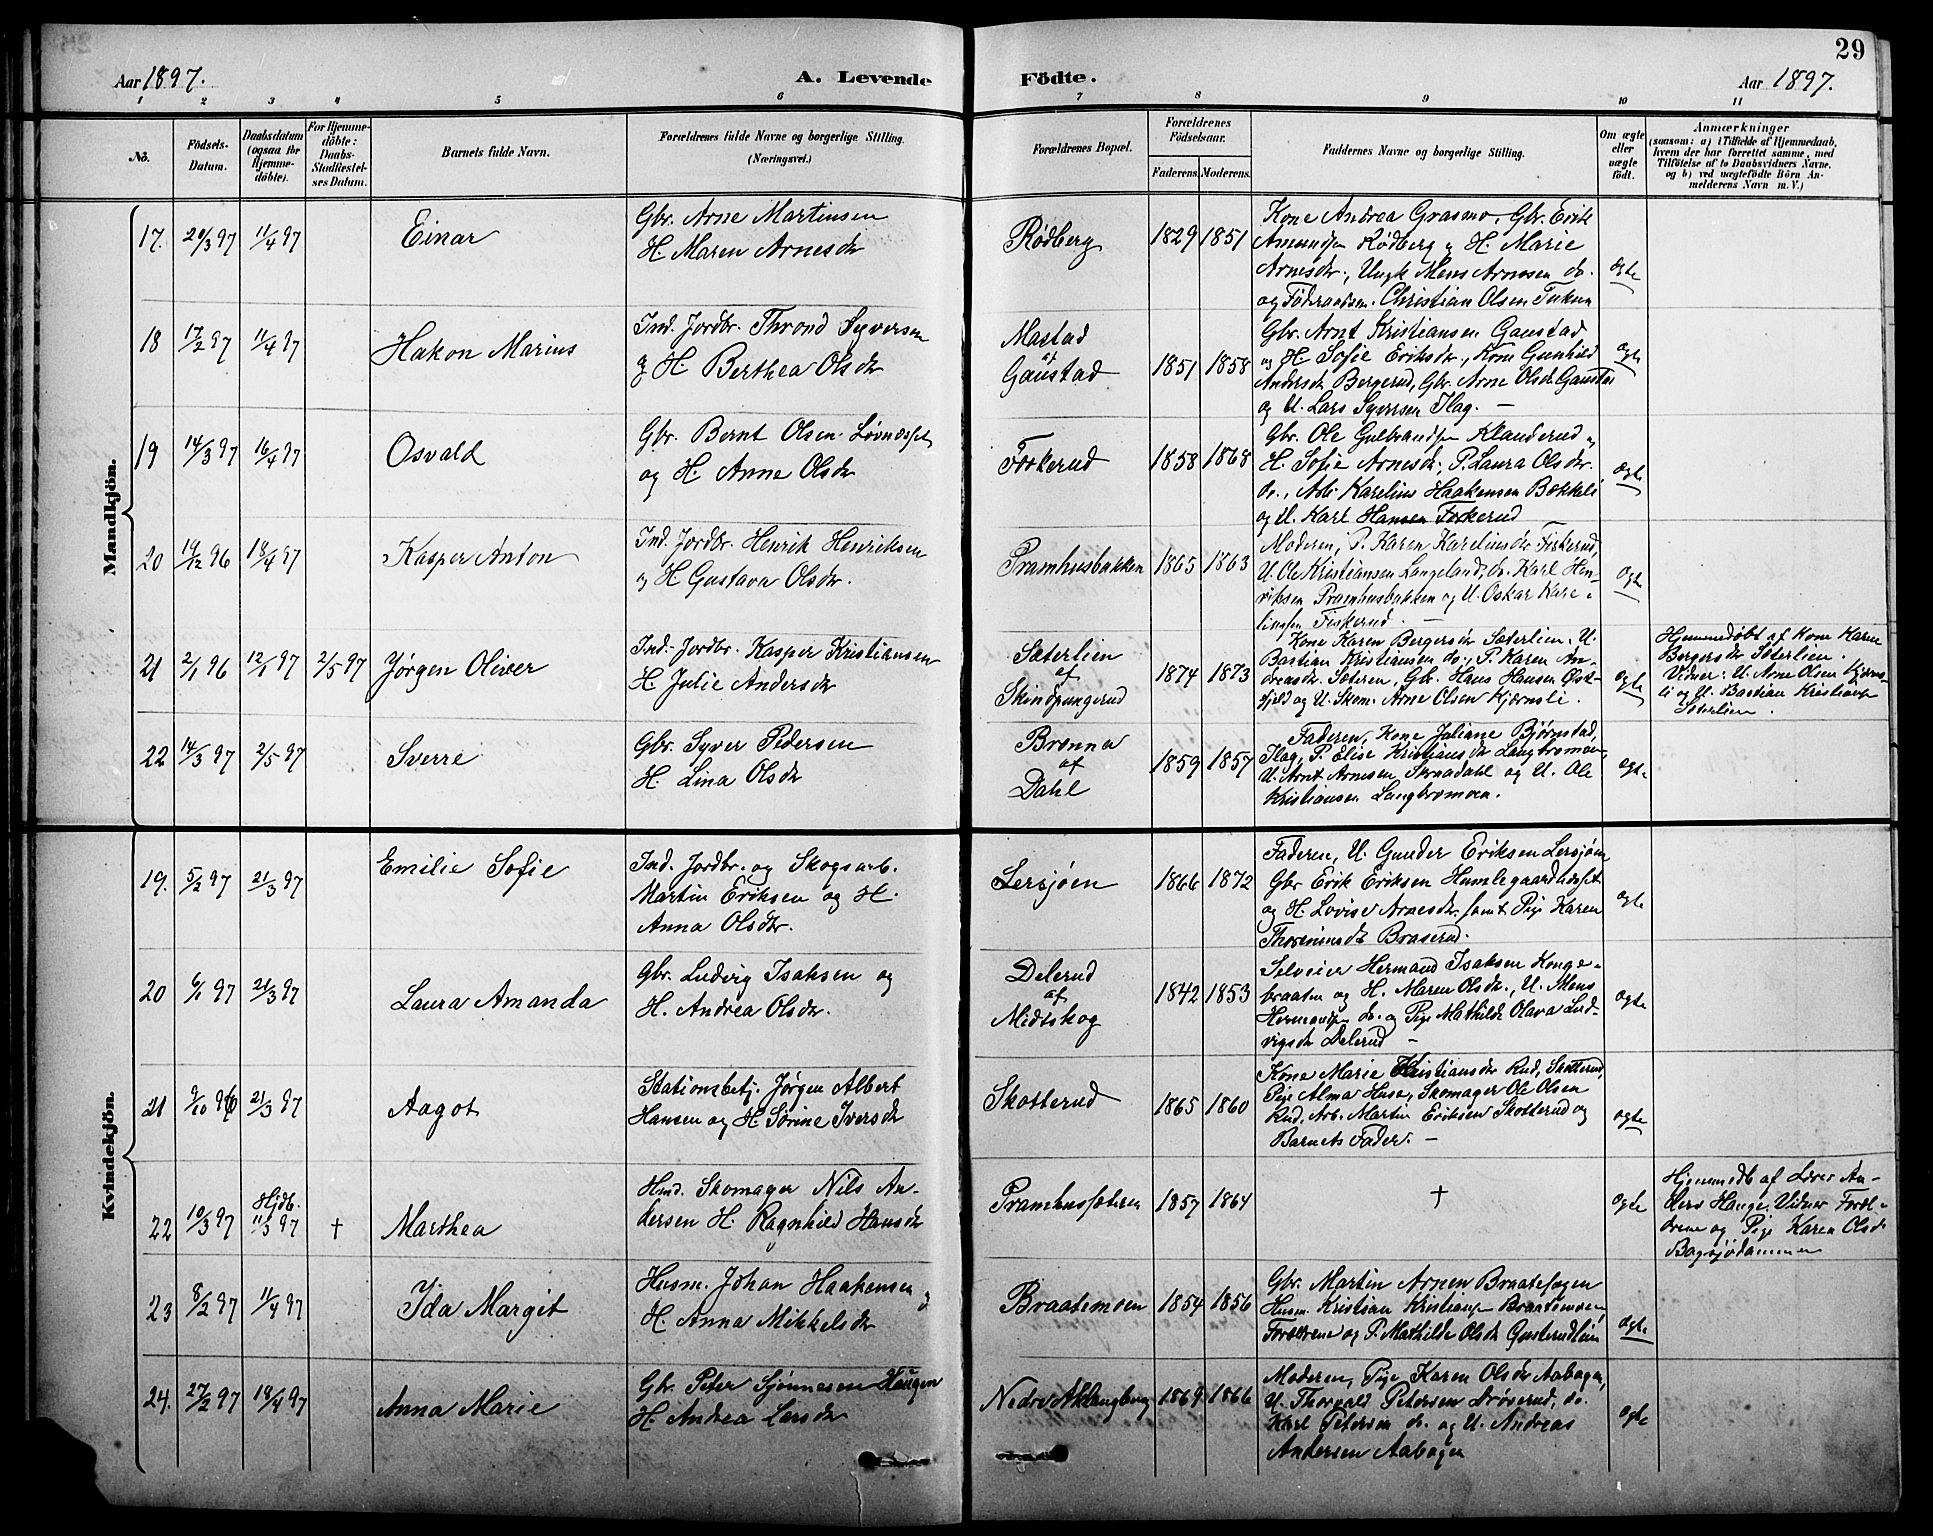 29
Aar 1897.
A. Levende
Födte.
Aar 1897.
1 2 3 4 5 6 7 8 9 10 11
No.
Födsels-
Datum.
Daabsdatum
(ogsaa for
Hjemme-
döbte).
For Hjemme-
döbte:
Daabs-
Stadfæstel-
ses Datum.
Barnets fulde Navn.
Forældrenes fulde Navne og borgerlige Stilling.
(Næringsvei.)
Forældrenes Bopæl.
Forældrenes
Födselsaar.
Faderens. Moderens.
Faddernes Navne og borgerlige Stilling.
Om ægte
eller
uægte
födt.
Anmærkninger
(saasom: a) i Tilfælde af Hjemmedaab,
hvem der har forrettet samme, med
Tilföielse af to Daabsvidners Navne.
og b) ved uægtefödte Börn An-
melderens Navn m. V.)
Mandkjön.
17. 20/3 97 11/4 97
Einar
Gbr. Arne Martinsen
H. Maren Arnesdr
Rødberg
1829 1851
Kone Andrea Grasmo, Gbr. Erik
Amundsen Rødberg og H. Marie
Arnesdr., Ungk. Mons Arnesen do.
og Føderaadsm. Christian Olsen
ægte
18 17/2 97 11/4 97
Hakon Marius
Ind. Jordbr. Thrond Syversen
og H. Berthea Olsdr
Mastad
af
Gaustad
1851 1858
Gbr. Arnt Kristiansen Gaustad
og H. Sofie Eriksdr., Kone Gunhild
Andersdr Bergerud, Gbr. Arne Olsen Gaustad
og U. Lars Syversen Flag. —
ægte
19 14/3 97 16/4 97
Osvald
Gbr. Bernt Olsen Løvnæsset
og H. Anne Olsdr
Forkerud
1858 1868
Gbr. Ole Gulbrandsen Klanderud og
H. Sofie Arnesdr., P. Laura Olsdr.
do., Arb. Karelius Haakensen Bækkeli
og U. Karl Hansen Forkerud
ægte
20 19/12 96 18/4 97
Kasper Anton
Ind. Jordbr. Henrik Henriksen
og H Gustava Olsdr.
Pramhusbakken
1865 1863
Moderen, P. Karen Kareliusdr Fiskerud,
U. Ole Kristiansen Langeland, do. Karl Hen-
riksen Pramhusbakken og U. Oskar Kare-
liussen Fiskerud. —
ægte
21 2/1 96 12/1 97 2/5 97
Jørgen Oliver
Ind. Jordbr. Kasper Kristiansen
H. Julie Andersdr
Sæterlien
af
Skindpungerud
1874 1873
Kone Karen Bergersdr Sæterlien, U.
Bastian Kristiansen do., P. Karen An-
dreasdr. Sæteren, Gbr. Hans Hansen Øst-
fjeld og U. Skom. Arne Olsen Kjærnsli.
ægte
Hjemmedøbt af Kone Karen
Bergersdr Sæterlien.
Vidner: U. Arne Olsen Kjærns-
li og U. Bastian Kristiansen
Sæterlien.
22 14/3 97 2/5 97
Sverre
Gbr. Syver Pedersen
H. Lina Olsdr
Brenna
af
Dahl
1859 1857
Faderen, Kone Juliane Bjørnstad,
Flag, P. Elise Kristiansdr Langbromoen,
U. Arnt Arnesen Skraadahl og U. Ole
Kristiansen Langbromoen.
ægte
Kvindekjön.
19. 5/2 97 21/3 97
Emilie Sofie
Ind. Jordbr. og Skogsarb.
Martin Eriksen og H.
Anna Olsdr.
Lersjøen
1866 1872
Faderen, U. Gunder Eriksen Lersjøen,
Gbr Erik Eriksen
og H. Lovise Arnesdr. samt Pige Karen
Braserud.
ægte
20 6/1 97 21/3 97
Laura Amanda
Gbr. Ludvig Isaksen og
H. Andrea Olsdr.
Delerud
af
Midtskog
1842 1853
Selveier Hermand Isaksen Konge-
braaten og H. Maren Olsdr., U. Mons
Hermansen do. og Pige Mathilde Olava Lud-
vigsdr Delerud —
ægte
21 9/10 96 21/3 97
Aagot
Stationsbetj. Jørgen Albert
Hansen og H. Sørine Iversdr
Skotterud
1865 1860
Kone Marie Kristiansdr Rud, Skotterud,
Pige Alma Huse, Skomager Ole Olsen
Rud, Arb. Martin Eriksen Skotterud og
Barnets Fader. —
ægte
22 10/3 97 Hjdb. 11/3 97 †
Marthea
Hmd. Skomager Nils An-
dersen H. Ragnhild Hansdr
Pramhussæteren
1857 1864
†
ægte
Hjemmedb af Lærer An-
ders Hauge, Vidner Foræl-
drene og Pige Karen Olsdr
Bagsjødammen
23 8/2 97 11/4 97
Ida Margit
Husm. Johan Haakensen og
H. Anna Mikkelsdr
Braatemoen
1854 1856
Gbr. Martin Arnesen
Husm Kristian Kristiansen Braatemoen,
Forældrene og P. Mathilde Olsdr Gusterudlien
ægte
24. 27/2 97 18/4 97
Anna Marie
Gbr. Peter Sjønnesen Haugen
H. Andrea Larsdr
Nedre Aklangberg
1869 1866
Moderen, Pige Karen Olsdr Aabogen,
U. Thorvald Petersen Brøserud, do.
Karl Petersen do. og U. Andreas
Andersen Aabogen
ægte